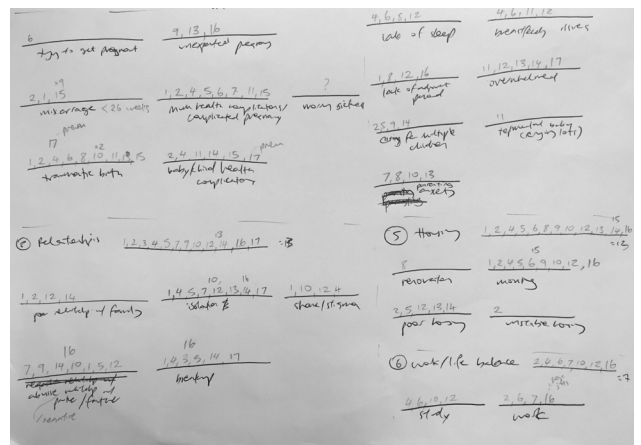 6
try to get pregnant
9, 13, 16
unexpected pregnancy
x9
2, 1, 15
miscarriage <26 weeks
1, 2, 4, 5, 6, 7, 11, 15
mum health complications/
complicated pregnancy
?
morning sickness
17 prem
x2
1, 2, 4, 6, 8, 10, 11, 15
traumatic birth
prem
2, 4, 11, 14, 15, 17
baby/child health
complications
9, 6, 5, 12
lack of sleep
4, 6, 11, 12
breastfeeding issues
1, 8, 12, 16
lack of
period
11, 12, 13, 14, 17
overwhelmed
9, 14
caring for multiple
children
11
baby
(crying lots)
7, 8, 10, 13
parenting
anxiety
Relationships
13
1, 2, 3, 4, 5, 7, 9, 10, 12, 14, 16, 17
1, 2, 12, 14
poor relship w/ family
10, 16
1, 4, 5, 7, 12, 13, 14, 17
isolation
1, 10, 12, 4
shame/stigma
16
7, 9, 14, 10, 1, 5, 12
abusive relship w/
/partner
negative
16
1, 4, 3, 5, 14, 17
breakup
5 Housing
15
1, 2, 4, 5, 6, 8, 9, 10, 12, 13, 14, 16
=13
8
renovation
15
1, 2, 4, 5, 6, 9, 10, 12, 16
moving
2, 5, 12, 13, 14
poor housing
2
unstable housing
6 work/life balance
2, 4, 6, 7, 10, 12, 16
=7
4, 6, 10, 12
study
2, 6, 7, 16
work